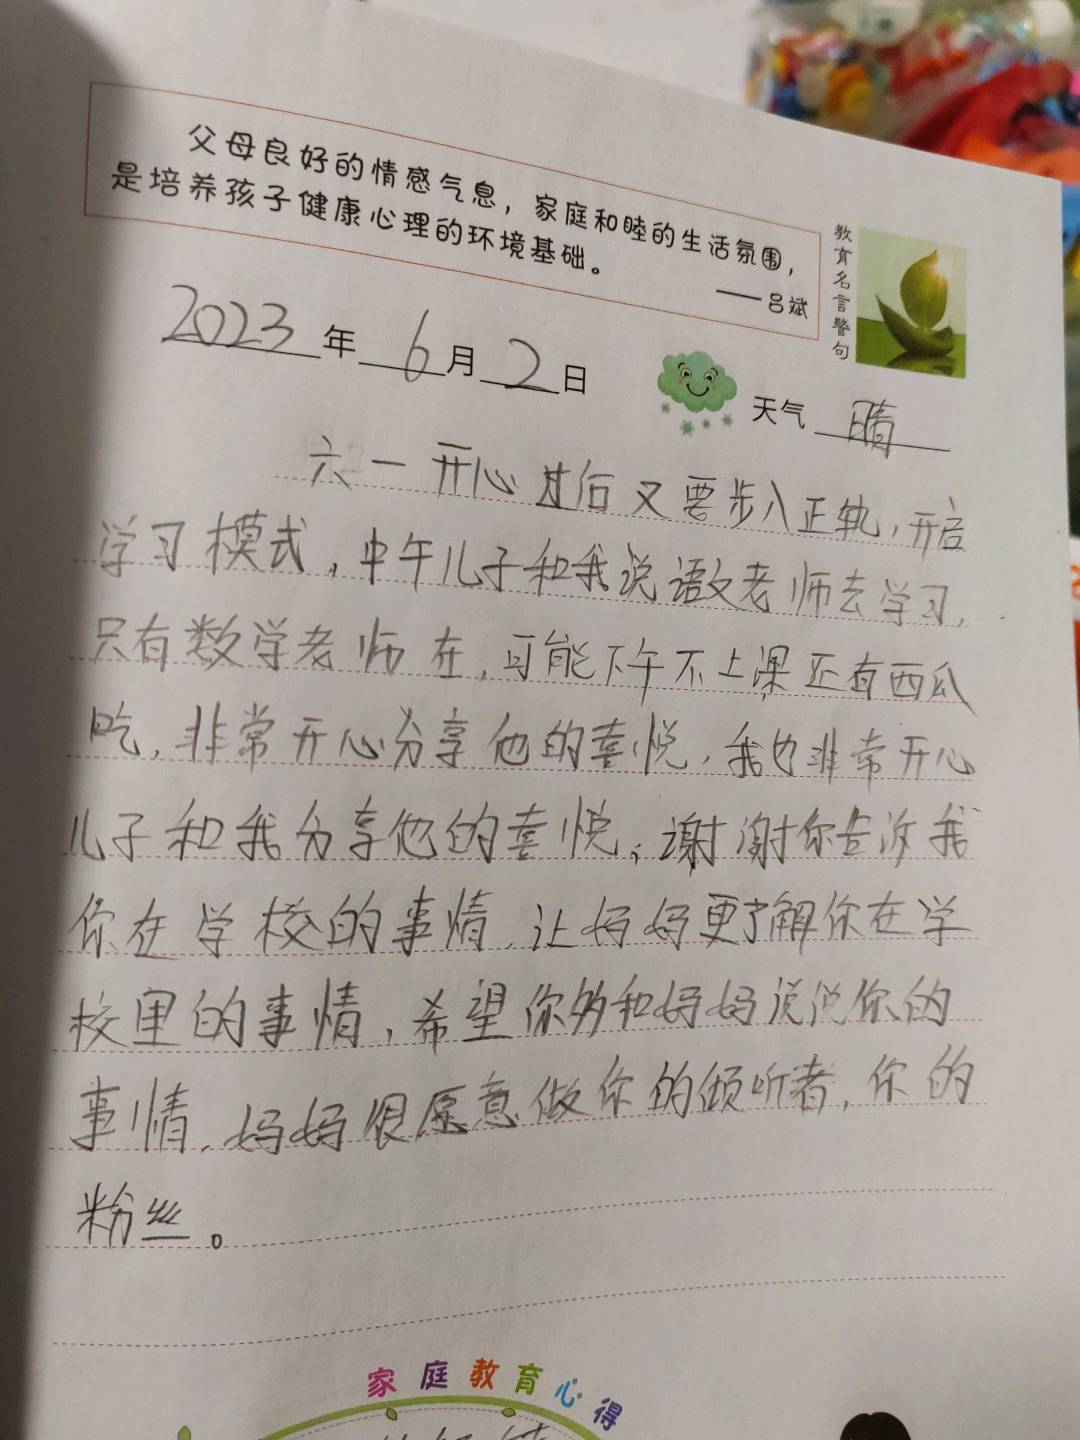 父母良好的情感气息，家庭和睦的生活氛围，
是培养孩子健康心理的环境基础。
——吕斌
教育名言警句
2023年6月2日
天气 晴
六一开心过后又要步入正轨，开启
学习模式，中午儿子和我说语文老师去学习，
只有数学老师在，可能下午不上课还有西瓜
吃，非常开心分享他的喜悦，我也非常开心
儿子和我分享他的喜悦，谢谢你告诉我
你在学校的事情，让妈妈更了解你在学
校里的事情，希望你多和妈妈说说你的
事情，妈妈很愿意做你的倾听者，你的
粉丝。
家庭教育心得